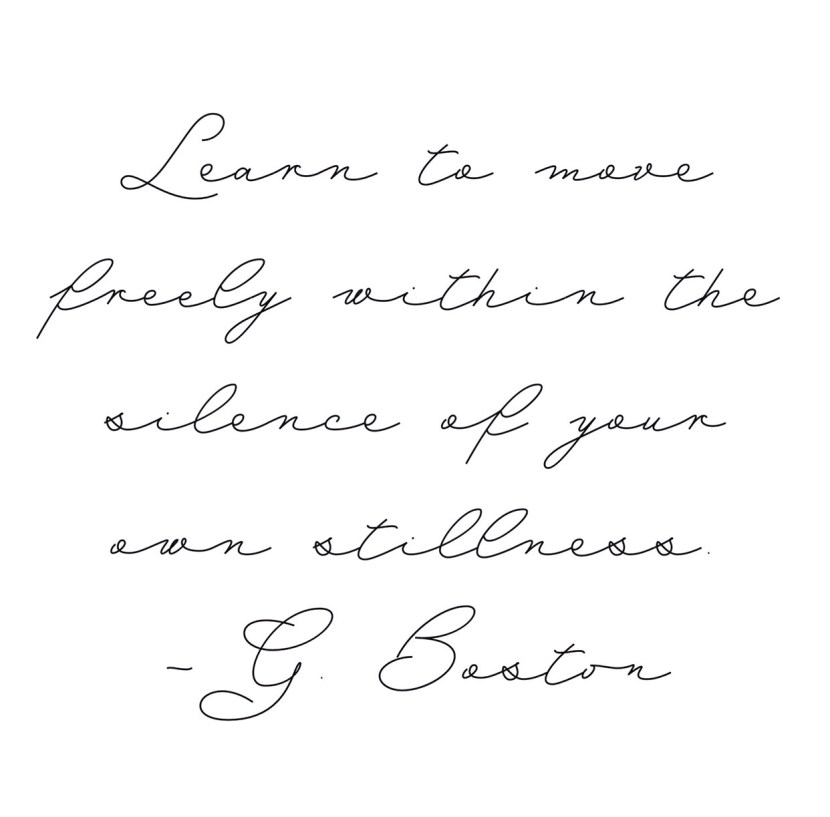 Learn to move
freely within the
silence of your
own stillness.
- G. Boston